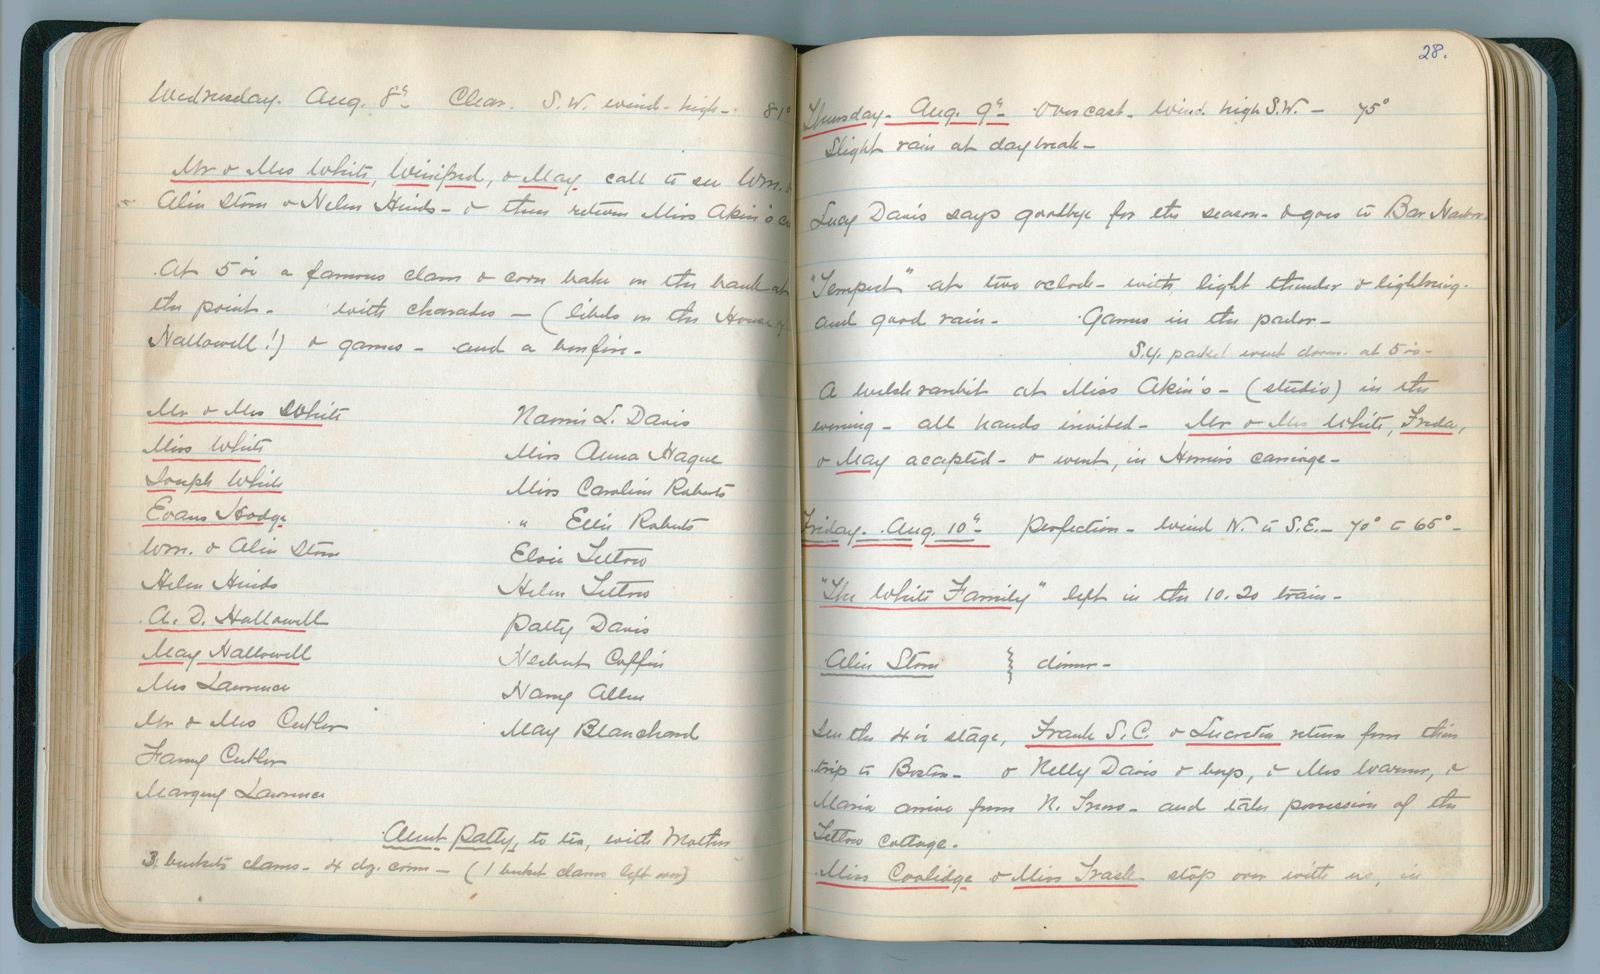 Wednesday. Aug. 8th Clear. S.W. wind - high - 81°
Mr & Mrs White, Winifred, & May call to see Wm. &
Alice Stone & Helen Hinds - & then return Miss Akin's
At 5 o'c a famous clam & corn bake on the bank at
the point - with charades - (libels on the House of
Hallowell!) & games - and a bonfire -
Mr & Mrs White
Miss White
Joseph White
Evans Hodge
Wm. & Alice Stone
Helen Hinds
A. D. Hallowell
May Hallowell
Mrs Lawrence
Mr & Mrs Cutler
Fanny Cutler
Margery Lawrence
Nannie L. Davis
Miss Anna Hague
Miss Caroline Roberts
" Ellie Roberts
Elsie
Helen
Patty Davis
Herbert Coffin
Nanny Allen
May Blanchard
Aunt Patty, to tea, with Mother
3 buckets clams - 4 dz. corn - (1 bucket clams left over)
28.
Thursday - Aug. 9th - Overcast - Wind high S.W. - 75°
Slight rain at daybreak -
Lucy Davis says goodbye for the season - & goes to Bar Harbor.
"Tempest" at two oclock - with light thunder & lightning -
and good rain - Games in the parlor -
S.Y. packet went down at 5 o'c -
A welsh rarebit at Miss Akin's - (studio) in the
evening - all hands invited - Mr & Mrs White, Freda,
& May accepted - & went, in carriage -
Friday - Aug. 10th - Perfection - Wind N. to S.E. - 70° to 65° -
"The White Family" left in the 10.20 train -
Alice Stone } dinner -
In the 4 o'c stage, Frank S. C. & Lucretia return from their
trip to Boston - & Nelly Davis & boys, & Mrs Warner, &
Maria arrive from N. - and take possession of the
cottage.
Miss Coolidge & Miss Trask stop over with us, in